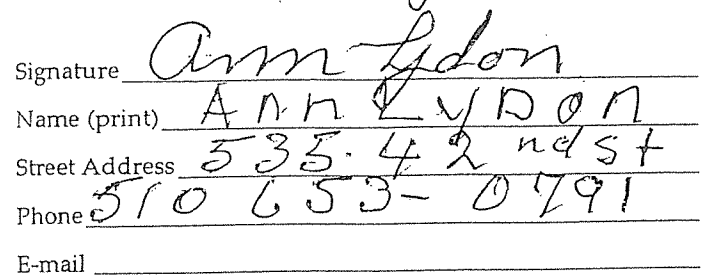 Signature Ann Lydon
Name (print) Ann Lydon
Street Address 535. 42 nd St
Phone 510 653-0791
E-mail